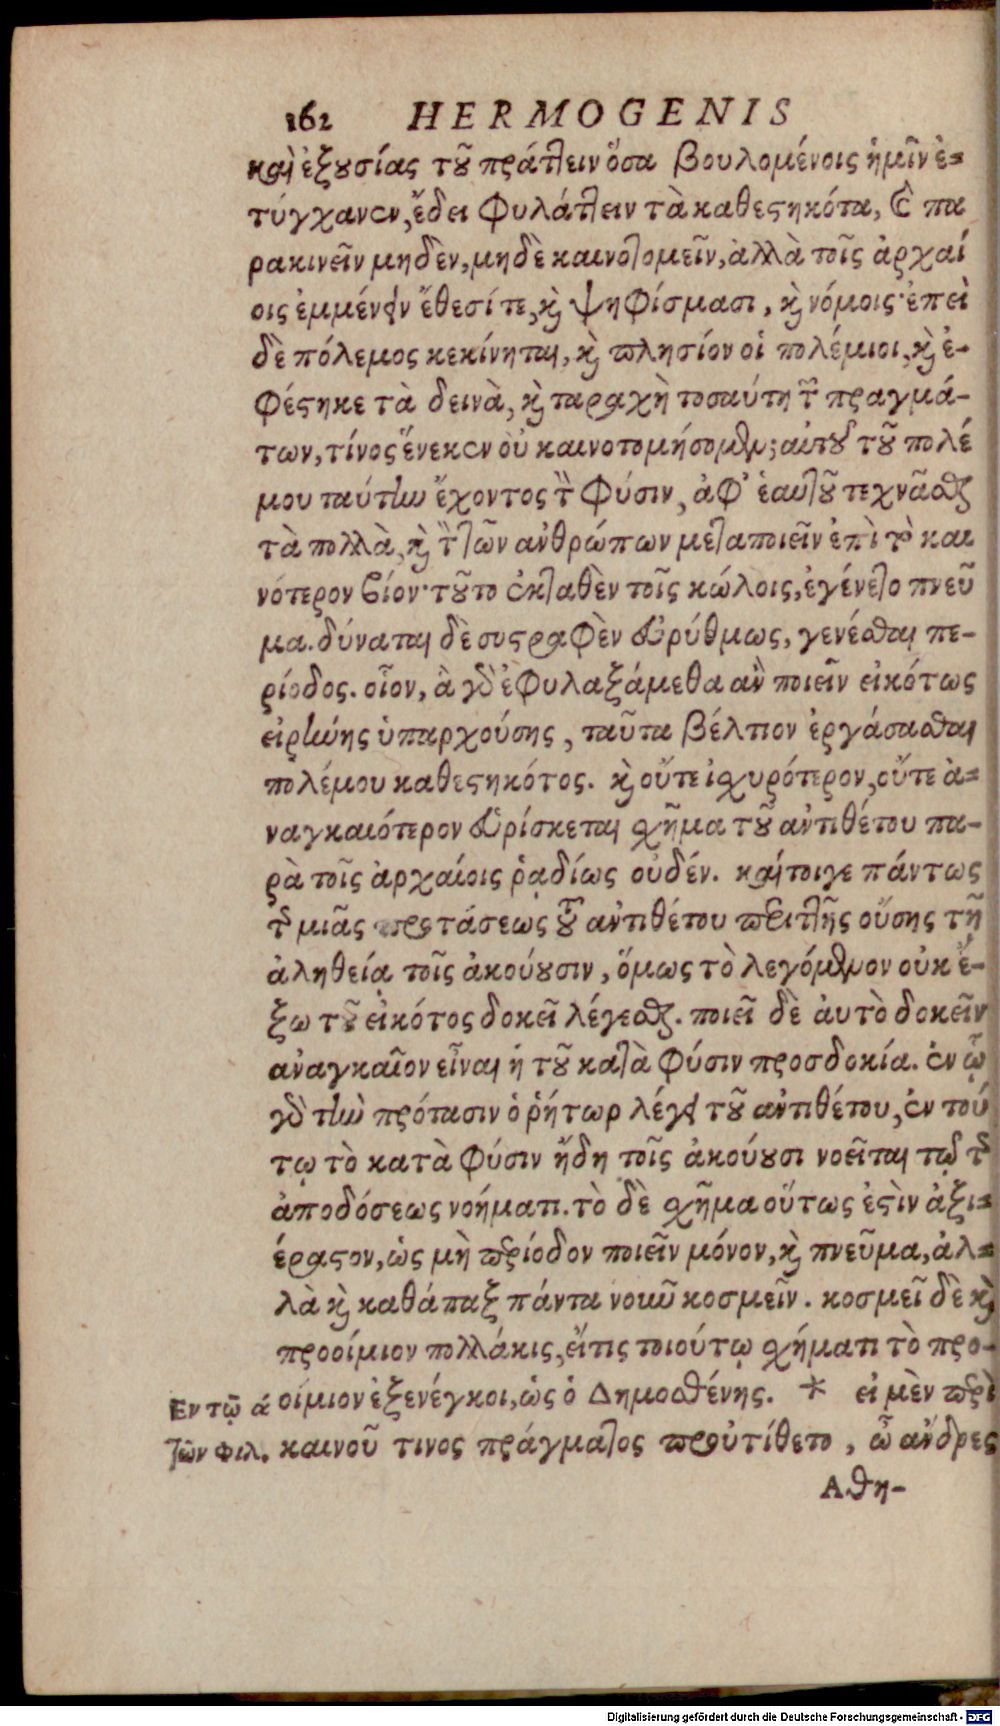 162 HERMOGENIS
καὶ ἐξουσίας τοῦ πράττειν ὅσα βουλομένοις ἡμῖν ἐ-
τύγχανεν, ἔδει φυλάττειν τὰ καθεστηκότα, καὶ πα
ρακινεῖν μηδὲν, μηδὲ καινοτομεῖν, ἀλλὰ τοῖς ἀρχαί
οις ἐμμένειν ἔθεσί τε, καὶ ψηφίσμασι, καὶ νόμοις· ἐπεὶ
δὲ πόλεμος κεκίνηται, καὶ πλησίον οἱ πολέμιοι, καὶ ἐ-
φέστηκε τὰ δεινὰ, καὶ ταραχὴ τοσαύτη τῶν πραγμά-
των, τίνος ἕνεκεν οὐ καινοτομήσομεν; αὐτοῦ τοῦ πολέ
μου ταύτην ἔχοντος τὴν φύσιν, ἀφ' ἑαυτοῦ τεχνᾶσθαι
τὰ πολλὰ, καὶ τὸν τῶν ἀνθρώπων μεταποιεῖν ἐπὶ τὸ και
νότερον βίον· τοῦτο ἐκταθὲν τοῖς κώλοις, ἐγένετο πνεῦ
μα. δύναται δὲ συστραφὲν εὐρύθμως, γενέσθαι πε-
ρίοδος. οἷον, ἃ γὰρ ἐφυλαξάμεθα ἂν ποιεῖν εἰκότως
εἰρήνης ὑπαρχούσης, ταῦτα βέλτιον ἐργάσασθαι
πολέμου καθεστηκότος. καὶ οὔτε ἰσχυρότερον, οὔτε ἀ-
ναγκαιότερον εὑρίσκεται σχῆμα τοῦ ἀντιθέτου πα-
ρὰ τοῖς ἀρχαίοις ῥᾳδίως οὐδέν. καίτοιγε πάντως
τῆς μιᾶς προτάσεως τοῦ ἀντιθέτου περιττῆς οὔσης τῇ
ἀληθείᾳ τοῖς ἀκούουσιν, ὅμως τὸ λεγόμενον οὐκ ἔ-
ξω τοῦ εἰκότος δοκεῖ λέγεσθαι. ποιεῖ δὲ ἀυτὸ δοκεῖν
ἀναγκαῖον εἶναι ἡ τοῦ κατὰ φύσιν προσδοκία. ἐν ᾧ
γὰρ τὴν πρότασιν ὁ ῥήτωρ λέγει τοῦ ἀντιθέτου, ἐν τού
τῳ τὸ κατὰ φύσιν ἤδη τοῖς ἀκούουσι νοεῖται τῷ τῆς
ἀποδόσεως νοήματι. τὸ δὲ σχῆμα οὕτως ἐστὶν ἀξι-
έραστον, ὡς μὴ περίοδον ποιεῖν μόνον, καὶ πνεῦμα, ἀλ-
λὰ καὶ καθάπαξ πάντα νοῦν κοσμεῖν. κοσμεῖ δὲ καὶ
προοίμιον πολλάκις, εἴ τις τοιούτῳ σχήματι τὸ προ-
Εν τῷ ά οίμιον ἐξενέγκοι, ὡς ὁ Δημοσθένης. * εἰ μὲν περὶ
τῶν Φιλ. καινοῦ τινος πράγματος προὐτίθετο, ὦ ἄνδρες
Αθη-
Digitalisierung gefördert durch die Deutsche Forschungsgemeinschaft - DFG